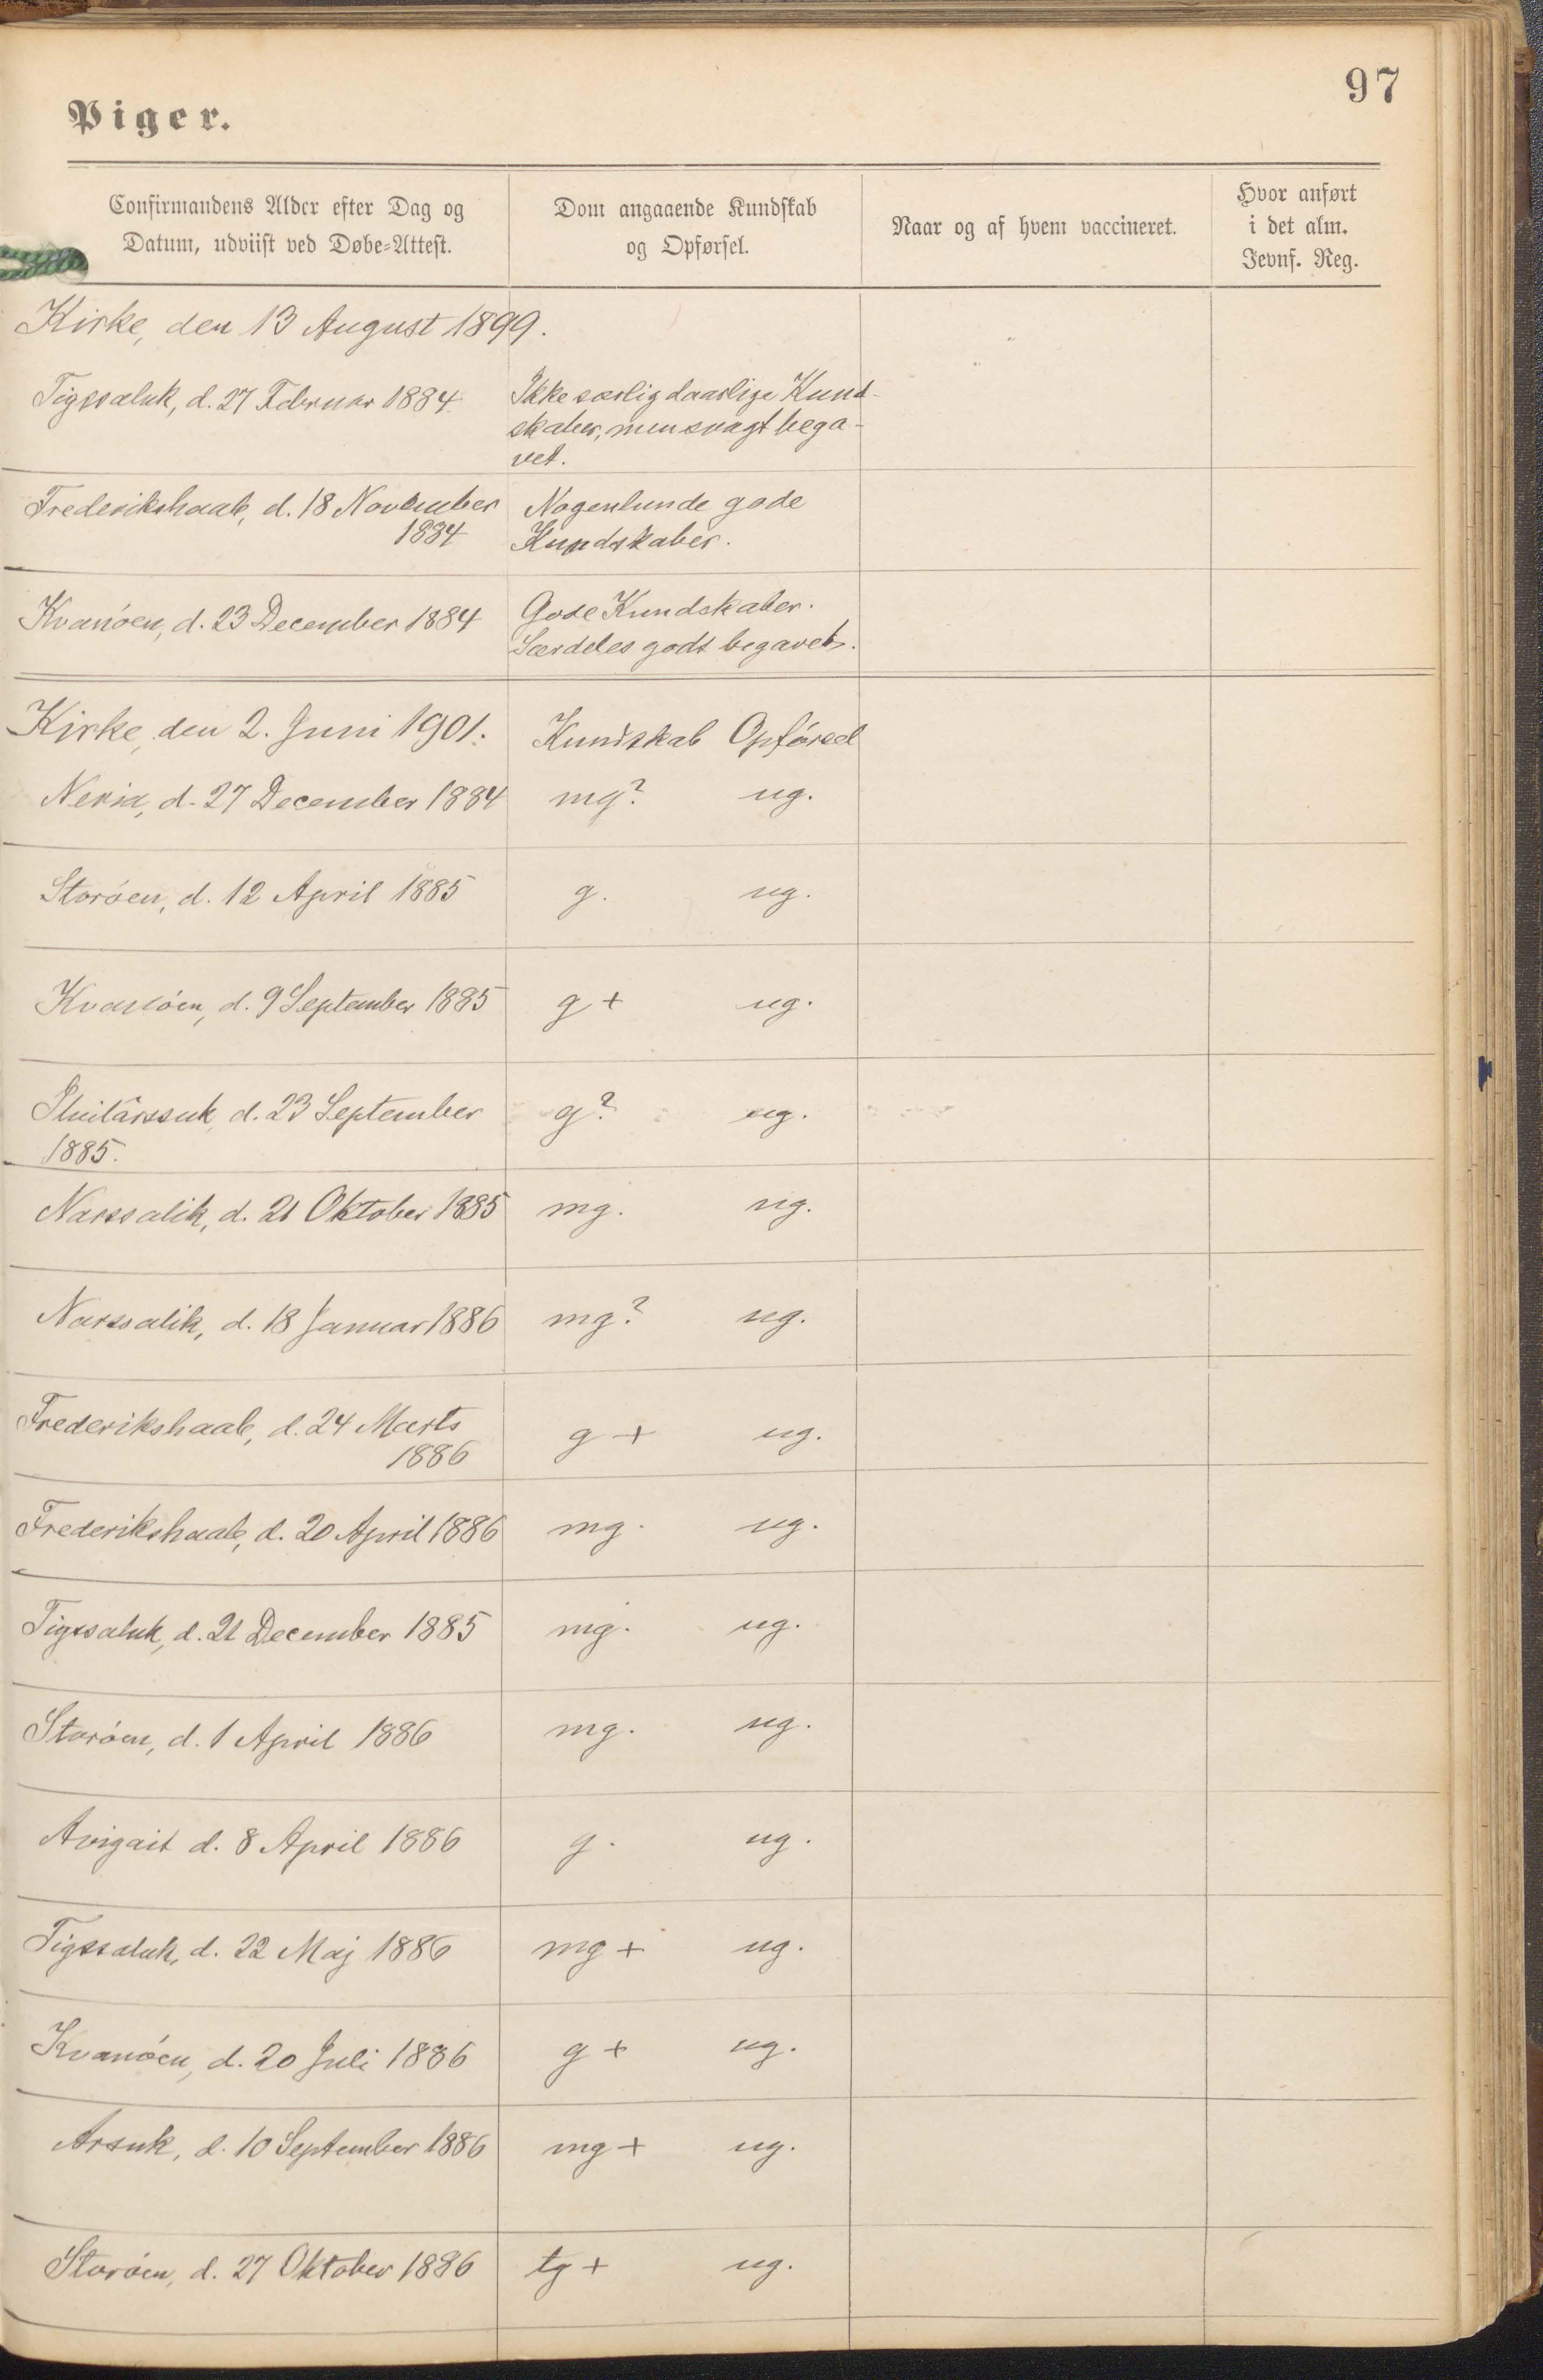 97
Piger.
Confirmandens Alder efter Dag og
Datum, udviist ved Døbe=Attest.
Dom angaaende Kundskab
og Opførsel.
Naar og af hvem vaccineret.
Hvor anført
i det alm.
Jevnf. Reg.
Kirke, den 13 August 1899.
Tigssaluk, d. 27 Februar 1884
Ikke særlig daarlige Kund-
skaber, men svagt bega-
vet.
Frederikshaab, d. 18 November
1884
Nogenlunde gode
Kundskaber.
Kvanöen, d. 23 December 1884
Gode Kundskaber.
Særdeles godt begavet.
Kirke, den 2. Juni 1901.
Kundskab Opförsel
Neria, d. 27 December 1884 mg? ug.
Storöen, d. 12 April 1885 g. ug.
Kvanöen, d. 9 September 1885 g + ug.
Iluilârssuk, d. 23 September g? ug.
1885.
Narssalik, d. 21 Oktober 1885 mg. ug.
Narssalik, d. 18 Januar 1886 mg? ug.
Frederikshaab, d. 24 Marts
1886 g + ug.
Frederikshaab, d. 20 April 1886 mg. ug.
Tigssaluk, d. 21 December 1885 mg. ug.
Storöen, d. 1 April 1886 mg. ug.
Avigait d. 8 April 1886 g. ug.
Tigssaluk, d. 22 Maj 1886 mg + ug.
Kvanöen, d. 20 Juli 1886 g + ug.
Arsuk, d. 10 September 1886 mg + ug.
Storöen, d. 27 Oktober 1886 tg + ug.